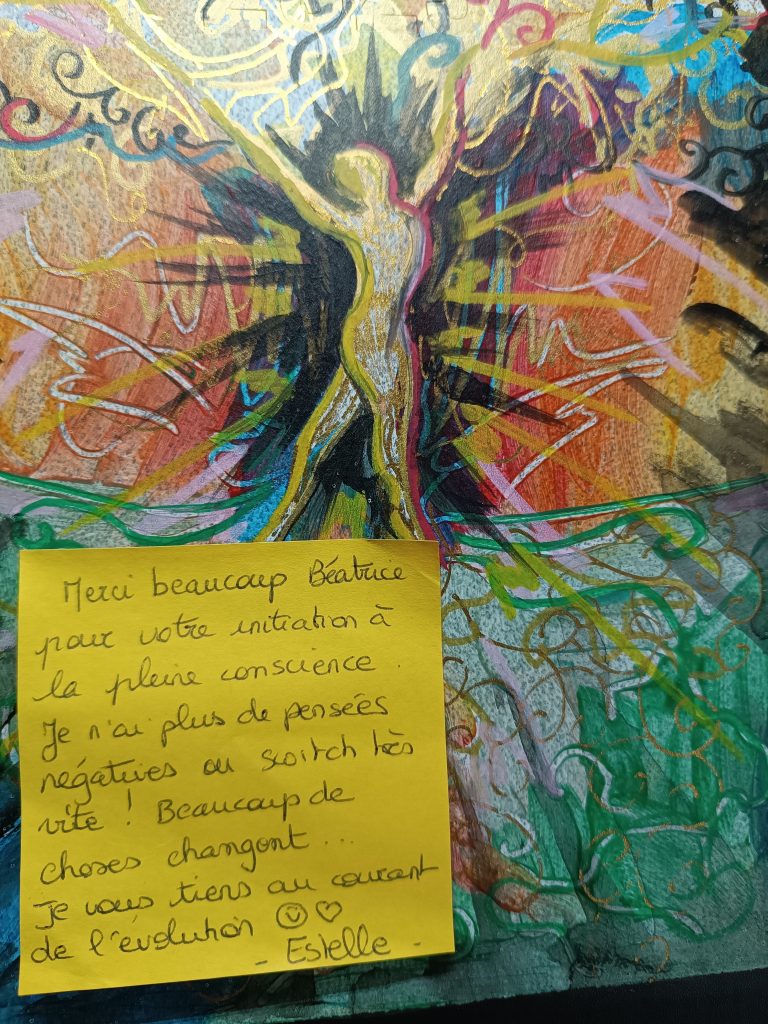 Merci beaucoup Béatrice
pour votre initiation à
la pleine conscience.
Je n'ai plus de pensées
négatives ou switch très
vite ! Beaucoup de
choses changent...
Je vous tiens au courant
de l'évolution ☺♡
- Estelle -